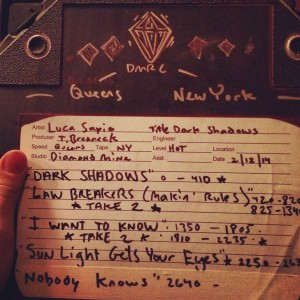 DMRC
Queens New York
Artist: Luca Sapio Title Dark Shadows
Producer: T. Brenneck Engineer:
Speed Queens Tape: NY Level HOT Location
Studio Diamond Mine Asst: Date 2/12/14
"DARK SHADOWS" 0 - 410 ★
"LAW BREAKERS (Makin' Rules) 420-820
★ TAKE 2 ★ 825-134
"I WANT TO KNOW" 1350 - 1805
★ TAKE 2 ★ 1810 - 2235 ★
"Sun Light Gets Your Eyes" ★ 2250 - 263
"Nobody Knows" 2640 -